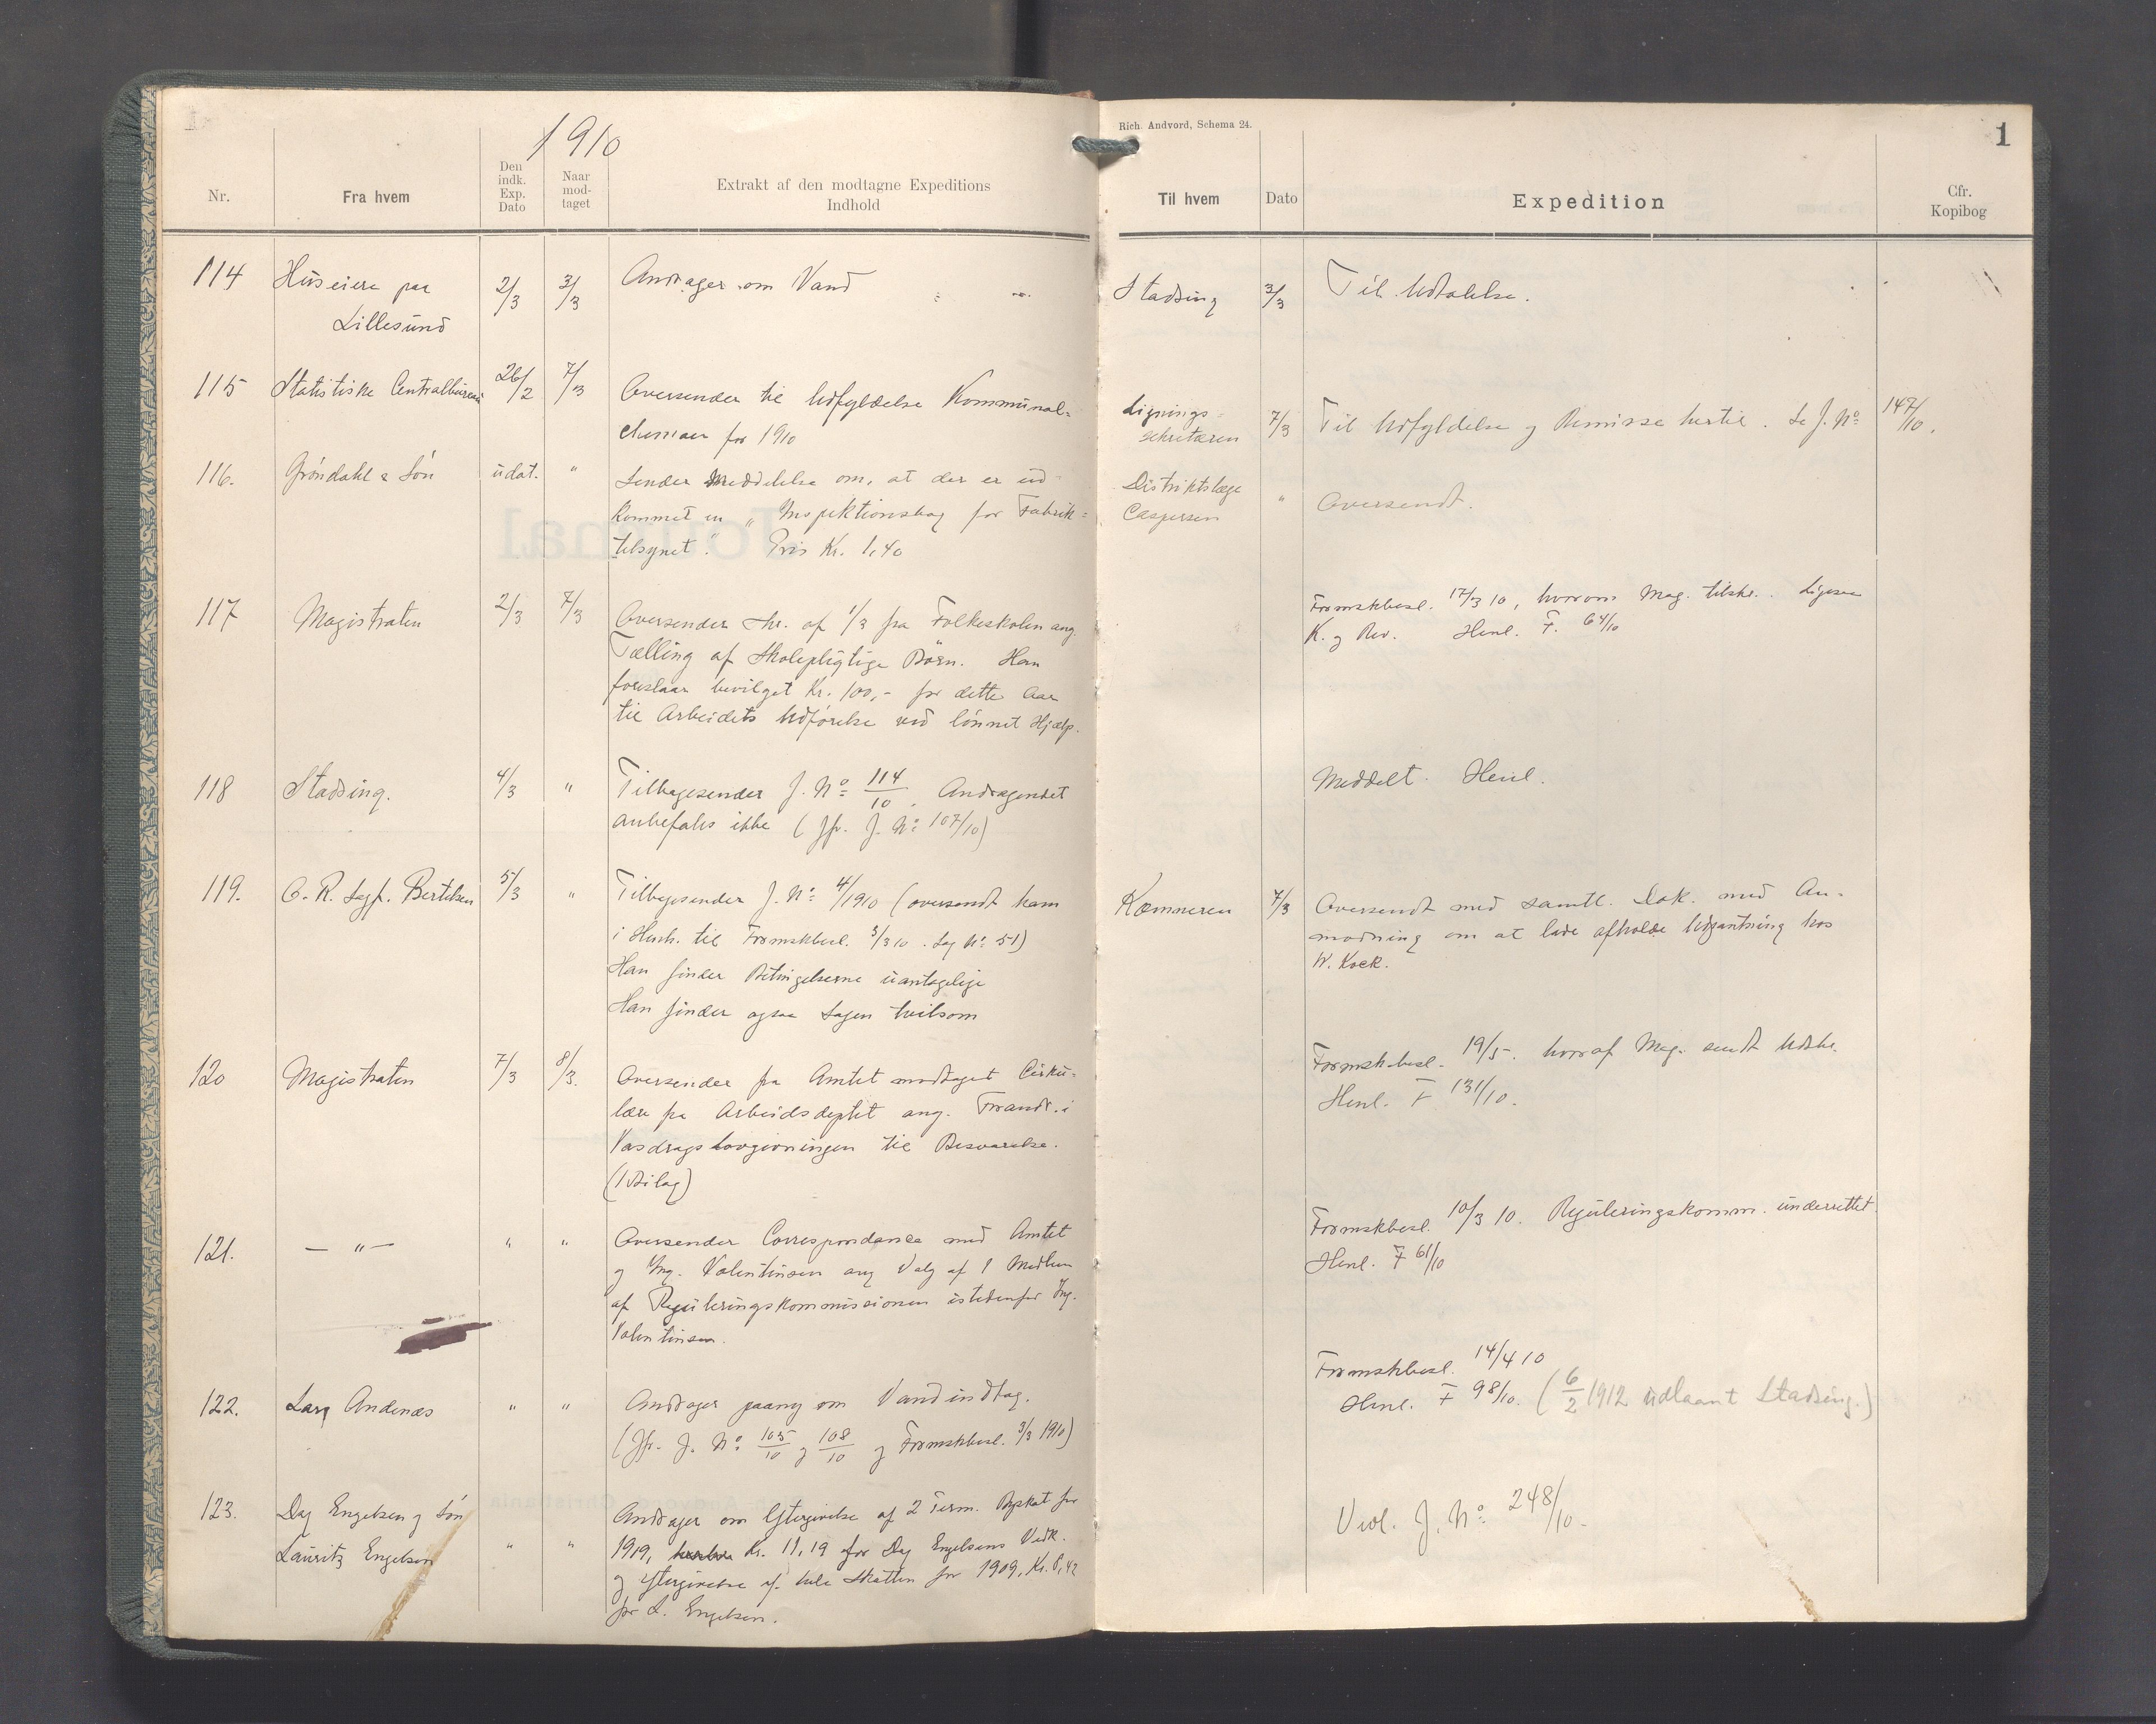 1910
Nr.
Fra hvem
Den indk. Exp. Dato
Naar mod-taget
Extrakt af den modtagne Expeditions Indhold
Rich. Andvord, Schema 24.
1
Til hvem
Dato
Expedition
Cfr. Kopibog
114 Huseiere paa 2/3 3/3 Andrager om Vand Stadsing 3/3 Til Udtalelse.
Lillesund
115 Statistiske Centralbureau 26/2 7/3 Oversender til Udfyldelse Kommunal- Lignings- 7/3 Til Udfyldelse og Remisse hertil. Se J. No 147/10.
skemaer for 1910 sekretæren
116. Grøndahl & Søn udat. " Sender Meddelelse om, at der er ud- Distriktslæge " Oversendt.
kommet en "Inspektionsbog for Fabrik- Caspersen
tilsynet". Pris Kr. 1,40
117 Magistraten 2/3 7/3 Oversender Skr. af 1/3 fra Folkeskolen ang. Formskbesl. 17/3 10, hvorom Mag. tilskr. Ligesaa
Tælling af Skolepligtige Børn. Han K. og Rev. Henl. F. 64/10
foreslaar bevilget Kr. 100,- for dette Aar
til Arbeidets Udførelse ved lønnet Hjælp.
118 Stadsing. 4/3 " Tilbagesender J. No 114/10. Andragendet Meddelt. Henl.
anbefales ikke (Jfr. J. No 107/10)
119. O. R. Sagf. Bertelsen 5/3 " Tilbagesender J. No 4/1910 (oversendt ham Kæmneren 7/3 Oversendt med samtl. Dok. med An-
i Henh. til Formskbesl. 3/3 10. Sag No 51) modning om at lade afholde Udpantning hos
Han finder Betingelserne uantagelige W. Kock.
Han finder ogsaa Sagen tvilsom
120 Magistraten 7/3 8/3. Oversender fra Amtet modtaget Cirku- Formskbesl. 19/5. hvoraf Mag. sendt Udskr.
lære fra Arbeidsdeptet ang. Forandr. i Henl. F 131/10.
Vasdragslovgivningen til Besvarelse.
(1 Bilag)
121. — " — " " Oversender Correspondance med Amtet Formskbesl. 10/3 10. Reguleringskomm. underrettet.
og Ing. Valentinsen ang Valg af 1 Medlem Henl. F 61/10
af Reguleringskommissionen istedenfor Ing.
Valentinsen.
122. Lars Andenæs " " Andrager paany om Vandindtag. Formskbesl. 14/4 10
(Jfr. J. No 105/10 og 108/10 og Formskbesl. 3/3 1910) Henl. F 98/10. (6/2 1912 udlaant Stadsing.)
123. Dag Engelsen og Søn Andrager om Eftergivelse af 2 Term. Byskat for Vedl. J. No 248/10.
Lauritz Engelsen " " 1909, Kr. 11,19 for Dag Engelsens Vedk.
og Eftergivelse af hele Skatten for 1909, Kr. 8,42
for L. Engelsen.